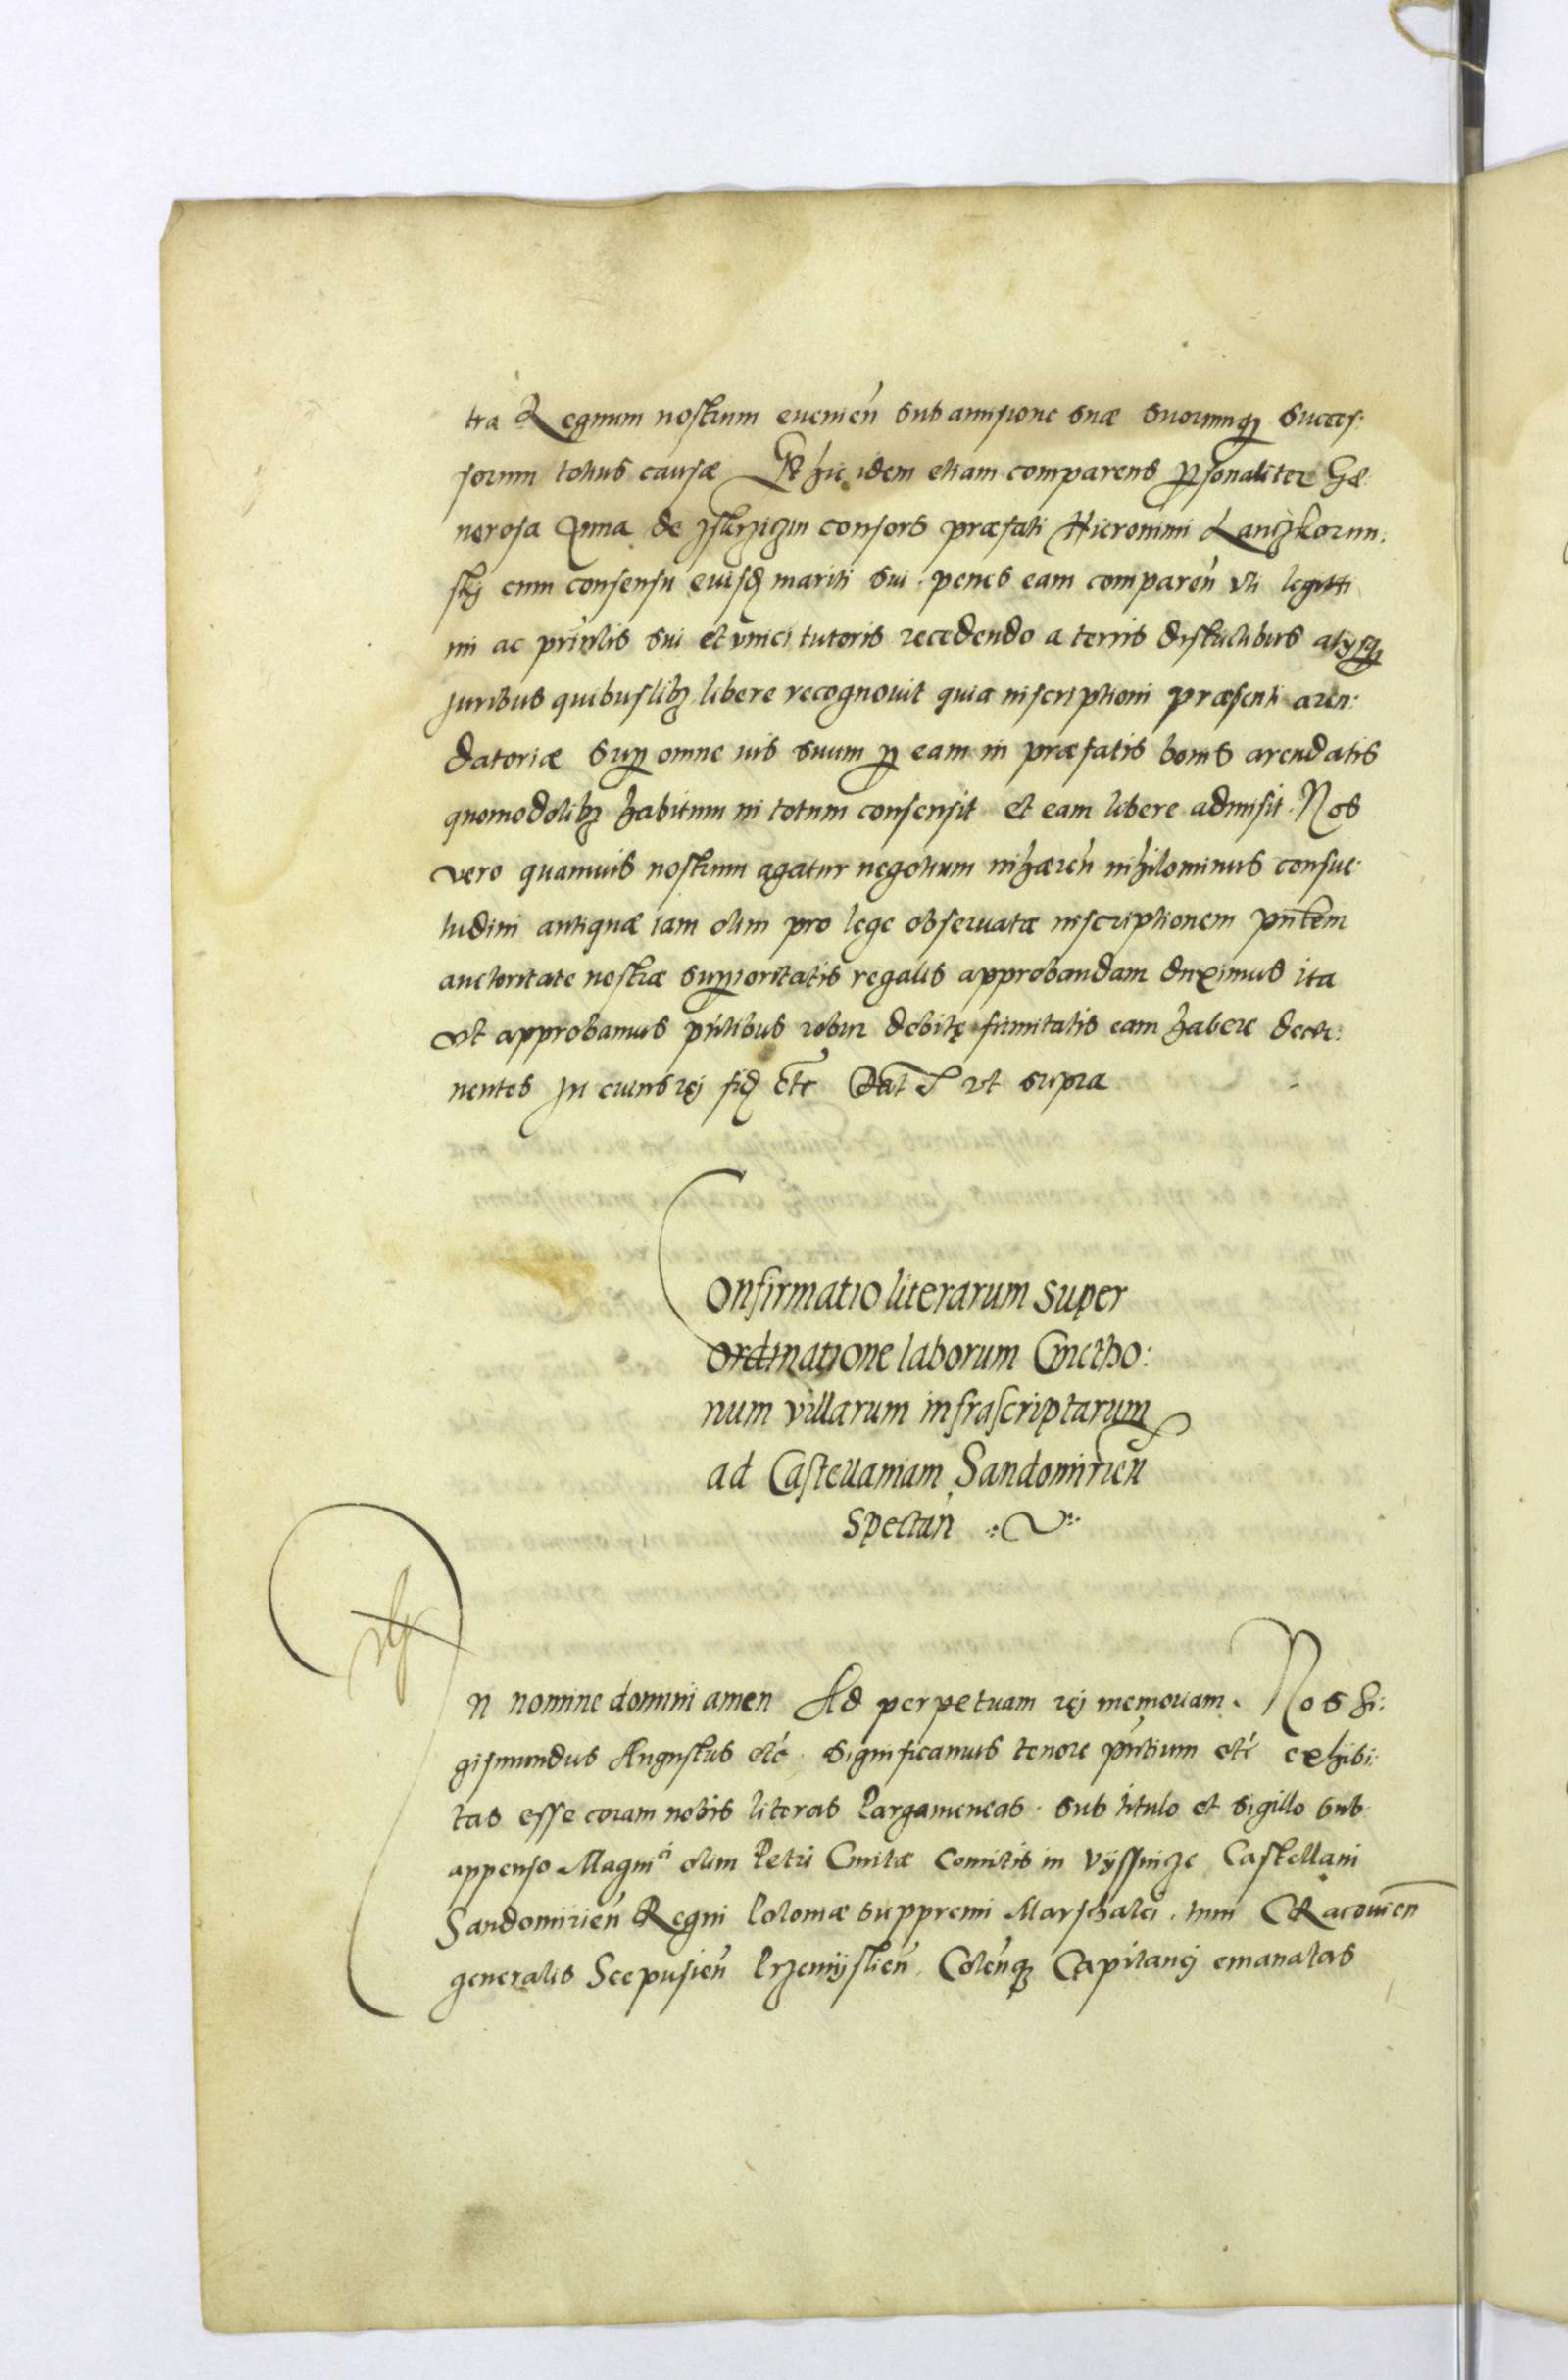 tra Regnum nostrum euenień sub amissione suæ suorumq₃ succes:
sorum totius causæ Et hic idem etiam comparens p̱sonaliter Ge
nerosa Anna de consors præfati Hieronimi Lanczkorun:
skÿ cum consensu euisd mariti sui penes eam compareń vti legitti
mi ac prin̄lis sui et vnici tutoris recedendo a terris districtibus alÿsq₃
Juribus quibuslib₃ libere recognouit quia inscriptioni præsenti aren:
datoriæ sup̱ omne ius suum p̱ eam in præfatis bonis arendatis
quomodolib₃ habitum in totum consensit et eam libere admisit. Nos
vero quamuis nostrum agatur negotium inhæreń nihilominus consue:
tudini antiquæ iam olim pro lege obseruatæ inscriptionem pn̄tem
auctoritate nostræ sup̱ioritatis regalis approbandam duximus ita
vt approbamus pn̄tibus robur debitę firmitatis eam habere decer:
nentes In cuius rej fid etc Dat vt supra
Confirmatio literarum super
ordinatione laborum Cmetho:
num villarum infrascriptarum
ad Castellaniam Sandomirień
spectań
In nomine domini amen Ad perpetuam rej memoriam. Nos Si:
gismundus Augustus etc. significamus tenore pn̄tium etc exhibi:
tas esse coram nobis literas Pargameneas. sub titulo et sigillo sub
appenso Magnici olim Petri Cmitæ Comitis in Vÿssnicze Castellani
Sandomirień Regni Poloniæ suppremi Marschalci, tum Cracouień
generalis Scepusień Przemÿslień Coleńq₃ Capitanej emanatas